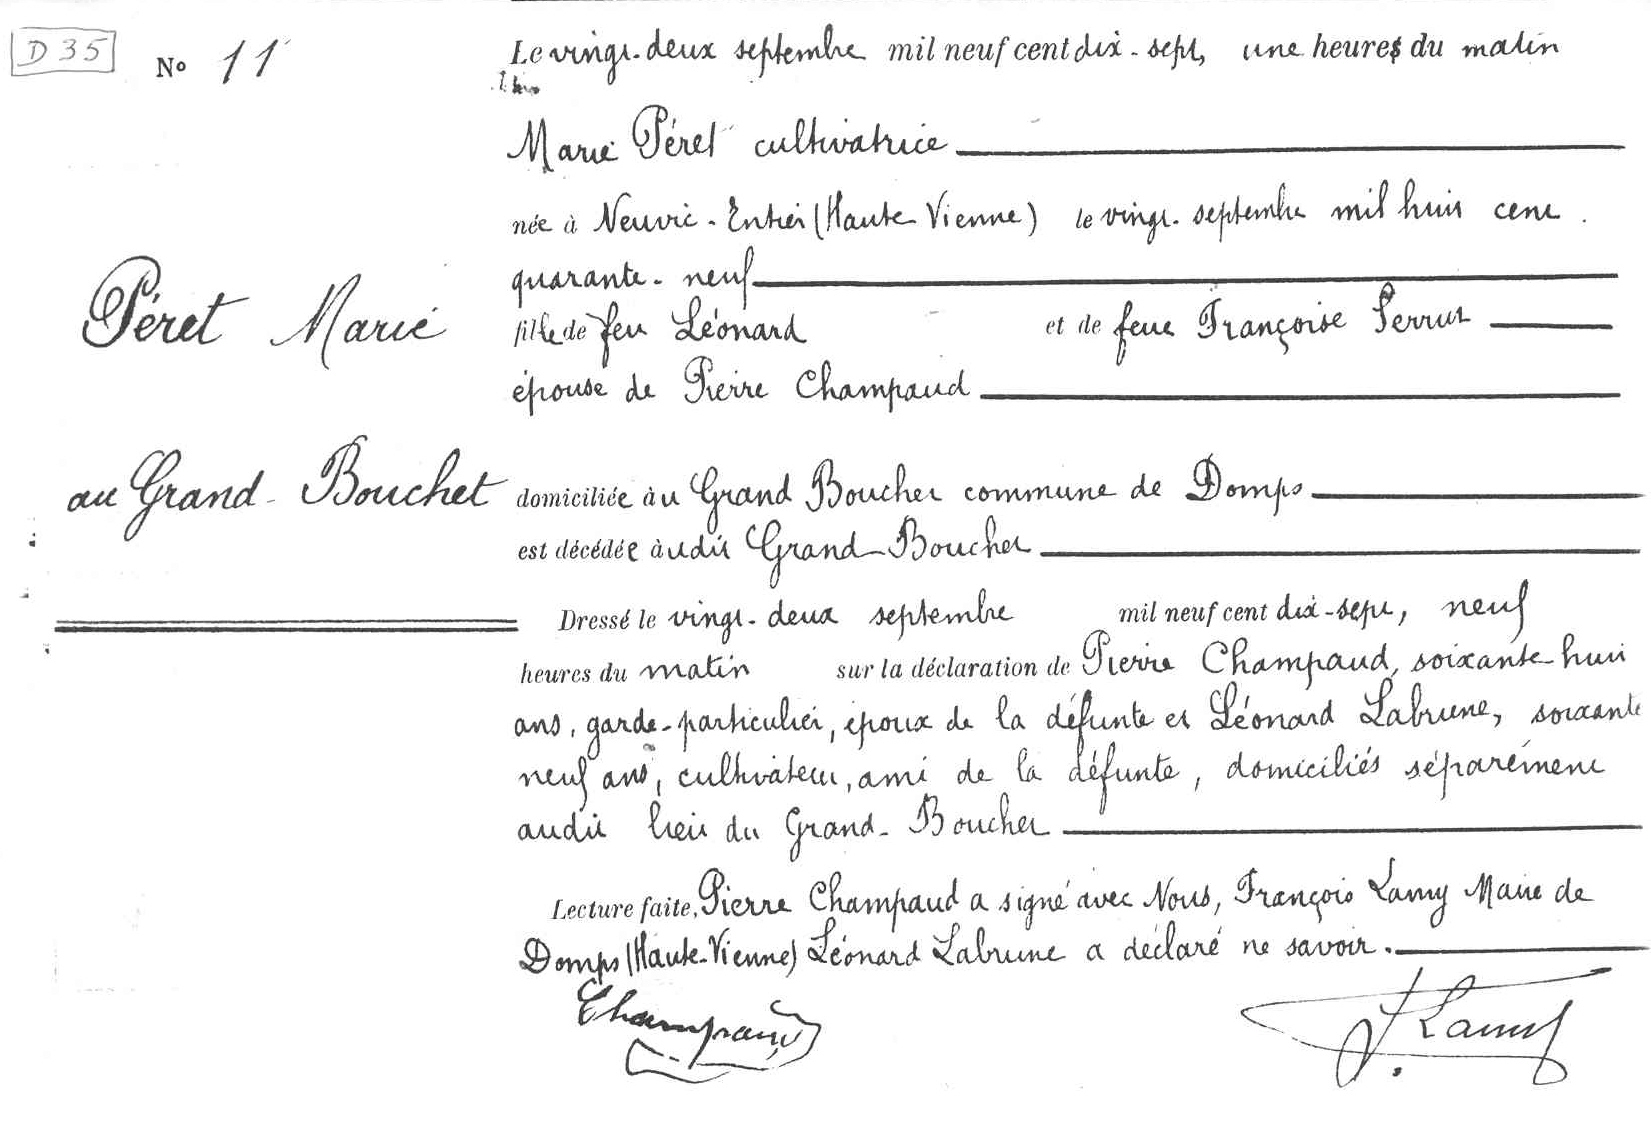 D 35
No 11
Le vingt-deux septembre mil neuf cent dix-sept, une heures du matin
Marie Péret cultivatrice
née à Neuvic-Entier (Haute Vienne) le vingt-septembre mil huit cent
quarante-neuf
Péret Marie
fille de feu Léonard et de feue Françoise Serrut
épouse de Pierre Champaud
au Grand-Bouchet
domiciliée à u Grand Bouchet commune de Domps
est décédée à udit Grand-Bouchet
Dressé le vingt-deux septembre mil neuf cent dix-sept, neuf
heures du matin sur la déclaration de Pierre Champaud, soixante-huit
ans, garde-particulier, époux de la défunte et Léonard Labrune, soixante
neuf ans, cultivateur, ami de la défunte, domiciliés séparément
audit lieu du Grand-Bouchet
Lecture faite, Pierre Champaud a signé avec Nous, François Lamy Maire de
Domps (Haute-Vienne) Léonard Labrune a déclaré ne savoir.
Champaud
F. Lamy